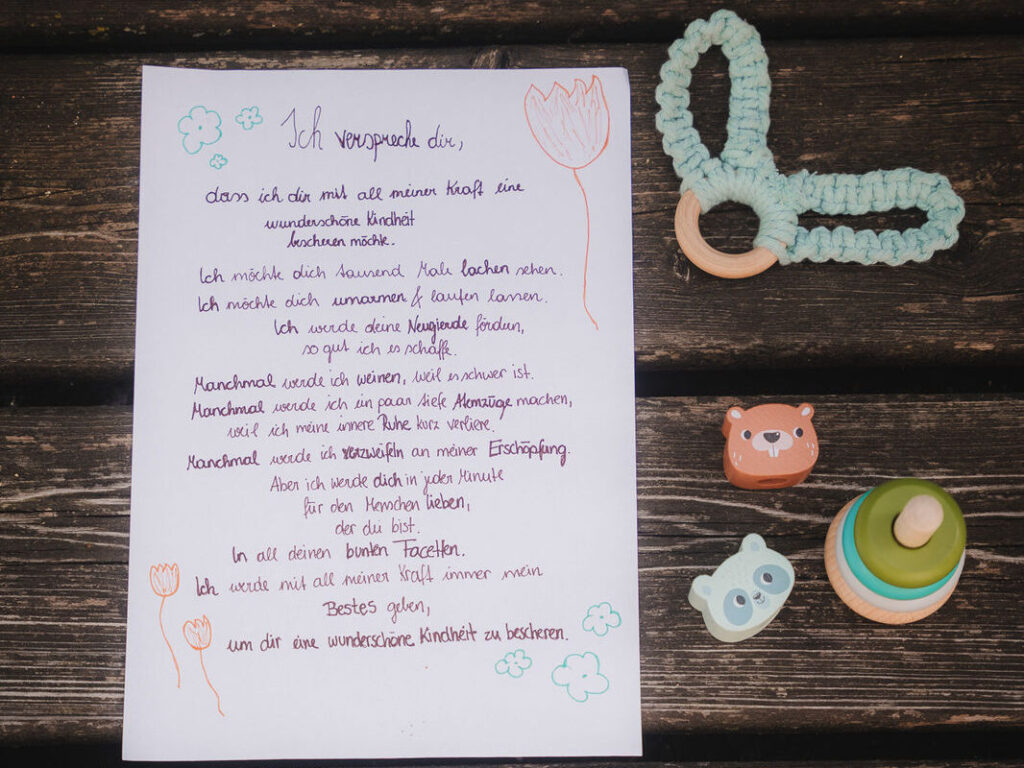 Ich verspreche dir,
dass ich dir mit all meiner Kraft eine
wunderschöne Kindheit
bescheren möchte.
Ich möchte dich tausend Male lachen sehen.
Ich möchte dich umarmen & laufen lassen.
Ich werde deine Neugierde fördern,
so gut ich es schaffe.
Manchmal werde ich weinen, weil es schwer ist.
Manchmal werde ich ein paar tiefe Atemzüge machen,
weil ich meine innere Ruhe kurz verliere.
Manchmal werde ich verzweifeln an meiner Erschöpfung.
Aber ich werde dich in jeder Minute
für den Menschen lieben,
der du bist.
In all deinen bunten Facetten.
Ich werde mit all meiner Kraft immer mein
Bestes geben,
um dir eine wunderschöne Kindheit zu bescheren.